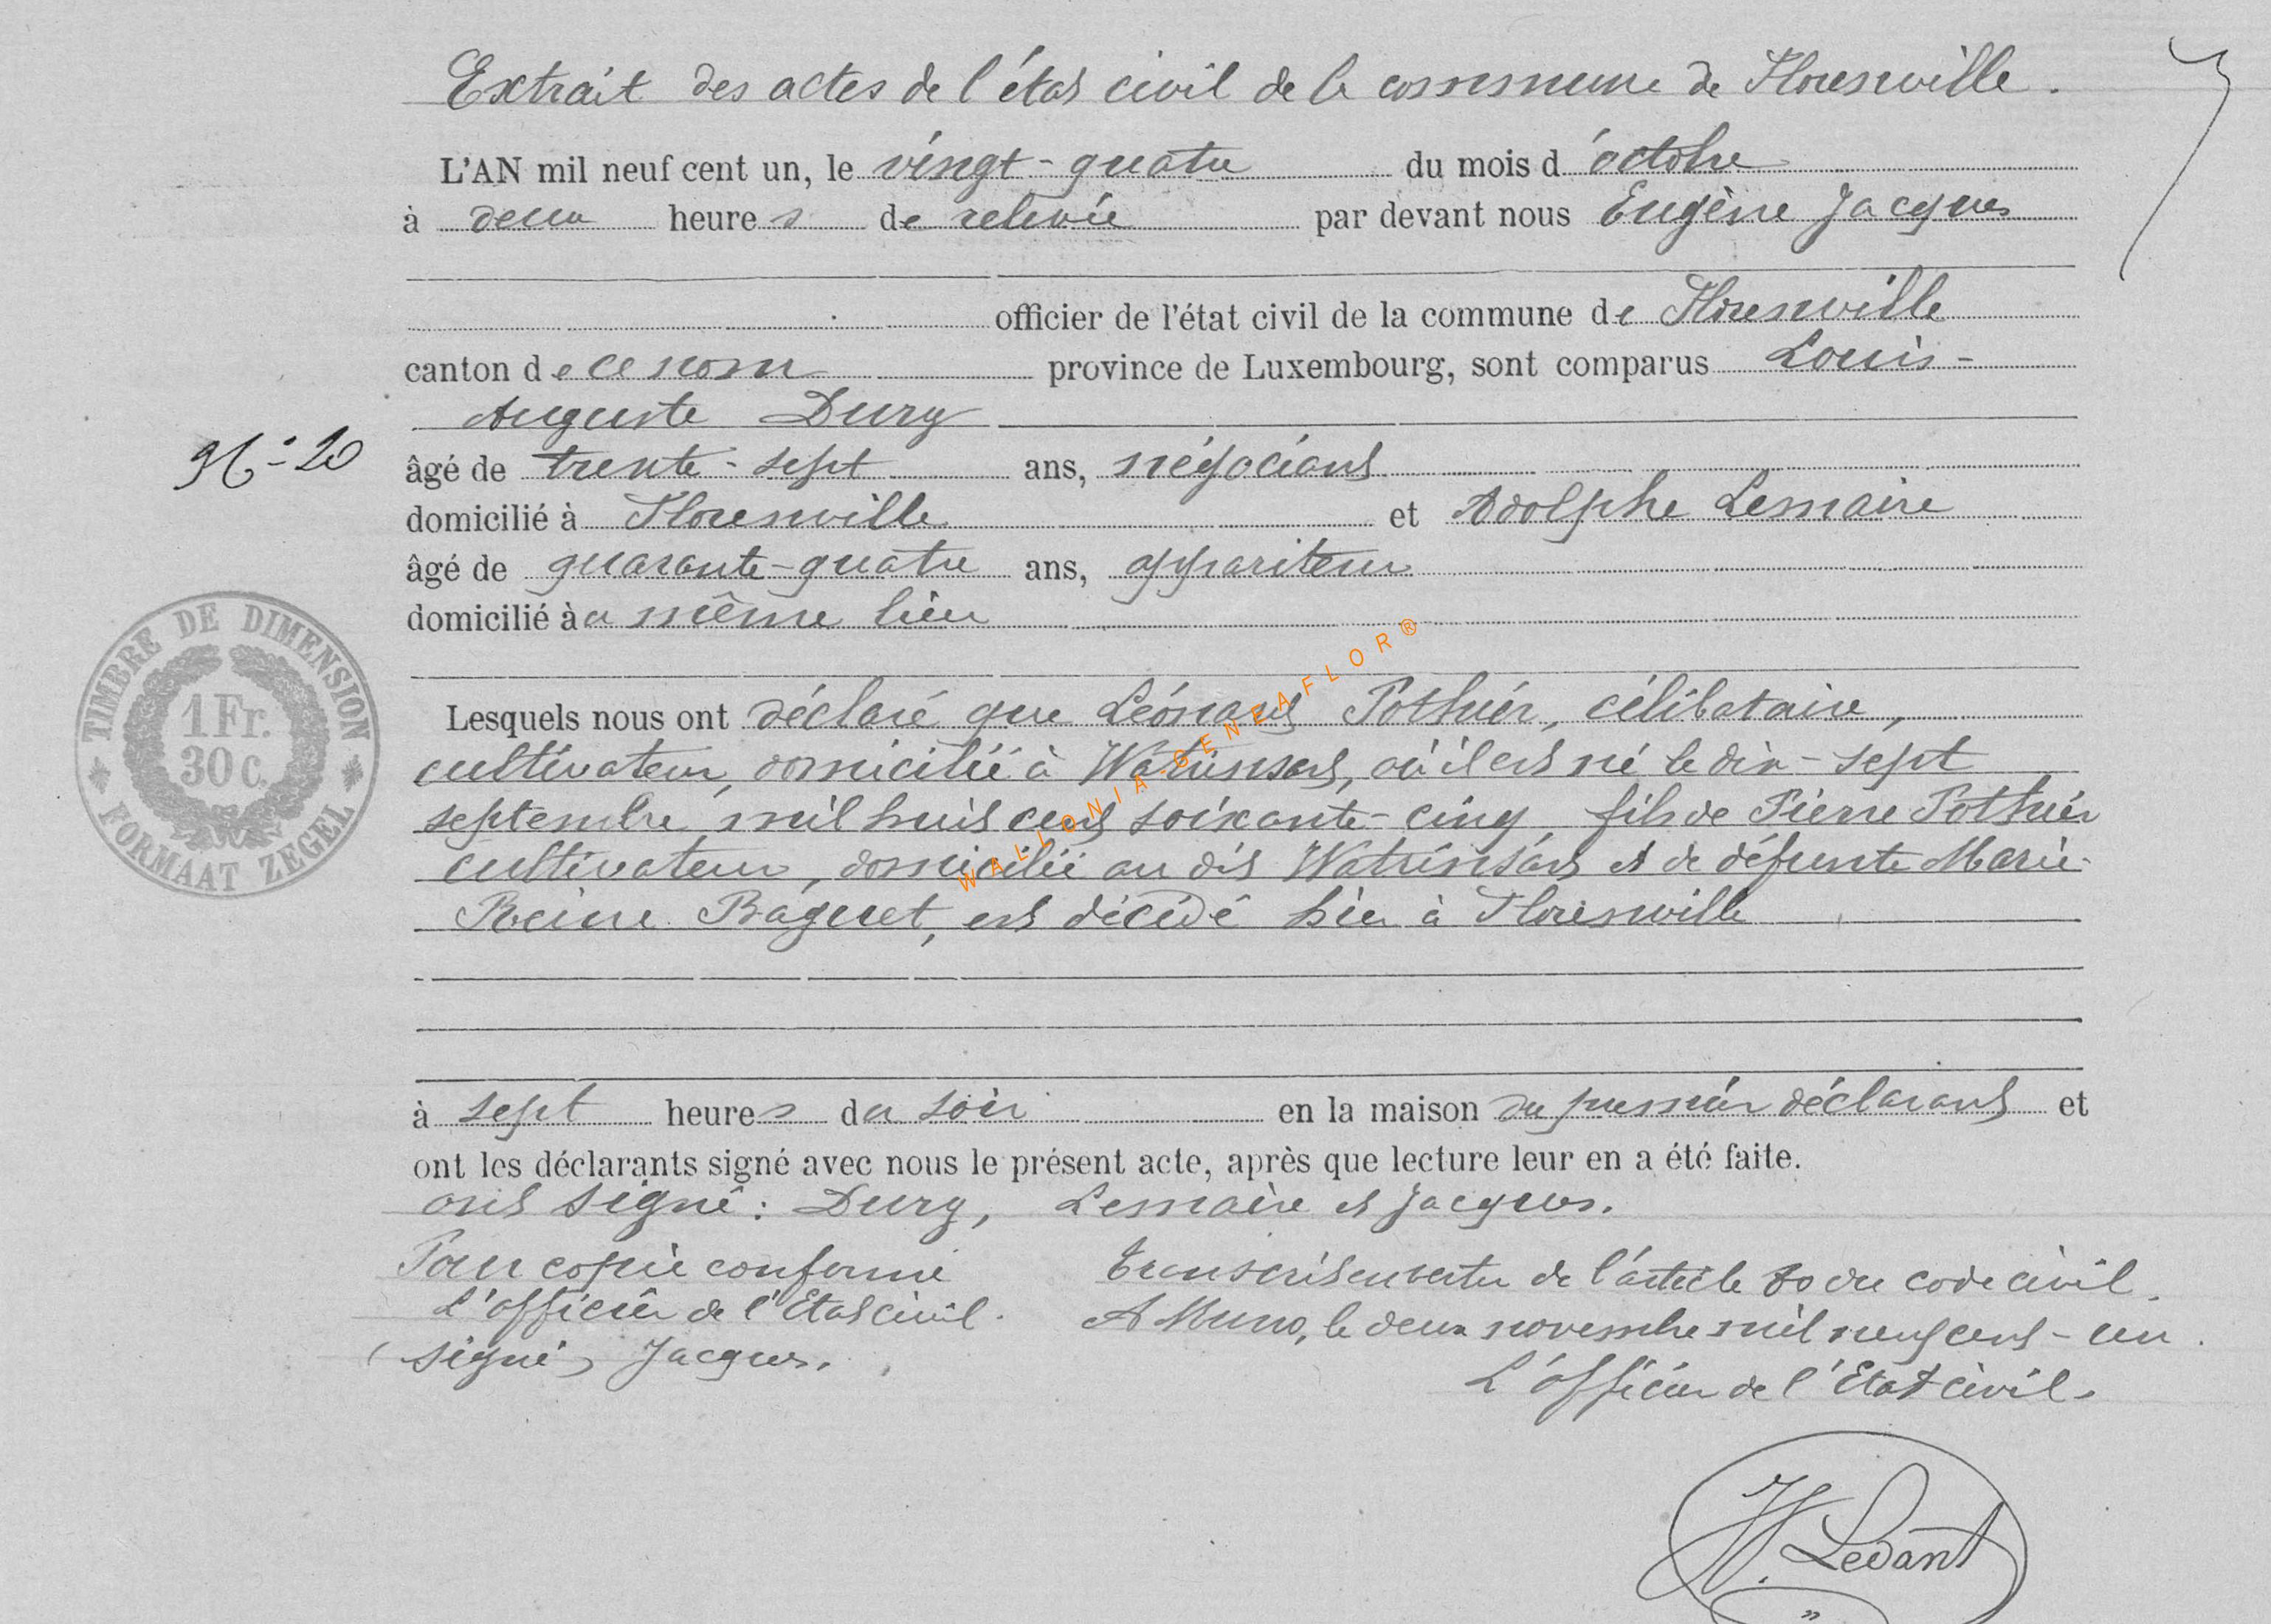 Extrait des actes de l'état civil de la commune de Florenville.
L'AN mil neuf cent un, le vingt-quatre du mois d'octobre
à deux heures de relevée par devant nous Eugène Jacques
officier de l'état civil de la commune de Florenville
canton de ce nom province de Luxembourg, sont comparus Louis-
Auguste Dury
N° 20
âgé de trente-sept ans, négociant
domicilié à Florenville et Adolphe Lemaire
âgé de quarante-quatre ans, appariteur
domicilié au même lieu
TIMBRE DE DIMENSION
1 Fr.
30 c.
FORMAAT ZEGEL
Lesquels nous ont déclaré que Léonard Pothier, célibataire,
cultivateur, domicilié à Watrinsart, où il est né le dix-sept
septembre mil huit cent soixante-cinq, fils de Pierre Pothier
cultivateur, domicilié au dit Watrinsart et de défunte Marie-
Reine Baguet, est décédé hier à Florenville
à sept heures du soir en la maison du premier déclarant et
ont les déclarants signé avec nous le présent acte, après que lecture leur en a été faite.
ont signé: Dury, Lemaire et Jacques.
Pour copie conforme
L'officier de l'Etat civil.
(signé) Jacques.
Transcrit en vertu de l'article 80 du code civil.
A Muno, le deux novembre mil neuf cent-un.
L'officier de l'Etat civil.
Ledant
WALLONIA.GENEAFLOR®